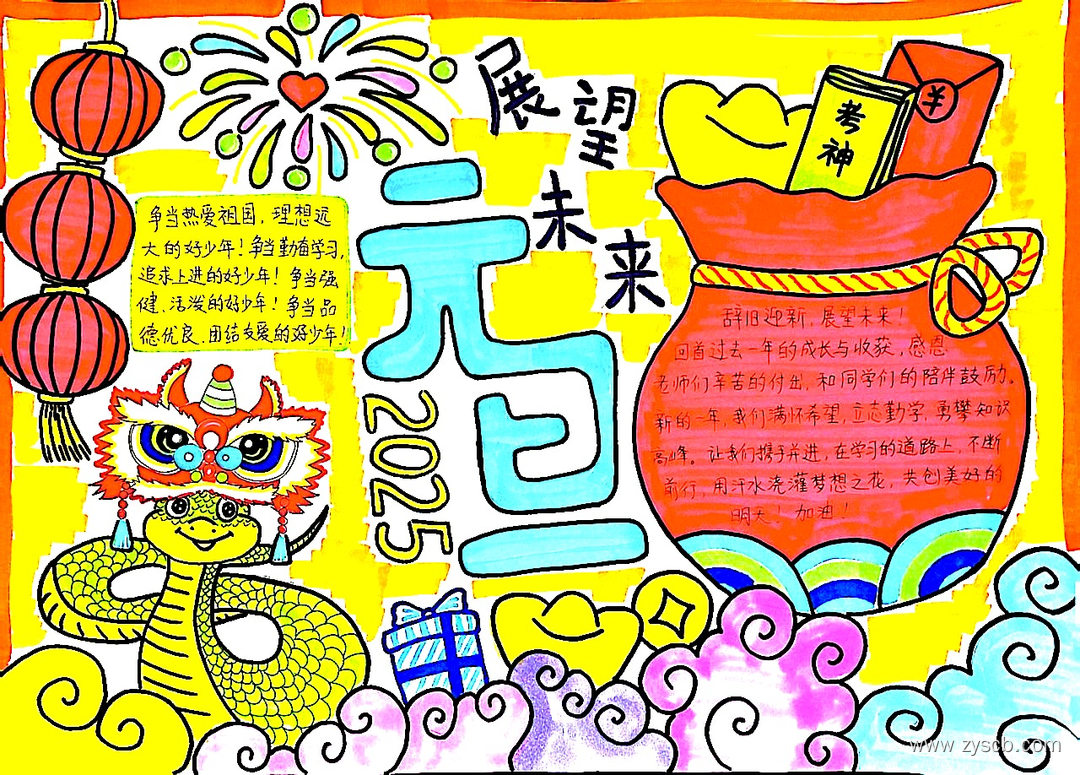 展望未来
元旦
2025
考神
¥
争当热爱祖国，理想远
大的好少年！争当勤奋学习，
追求上进的好少年！争当强
健、活泼的好少年！争当品
德优良、团结友爱的好少年！
辞旧迎新，展望未来！
回首过去一年的成长与收获，感恩
老师们辛苦的付出，和同学们的陪伴鼓励。
新的一年，我们满怀希望，立志勤学，勇攀知识
高峰。让我们携手并进，在学习的道路上，不断
前行，用汗水浇灌梦想之花，共创美好的
明天！加油！
www.zyscb.com